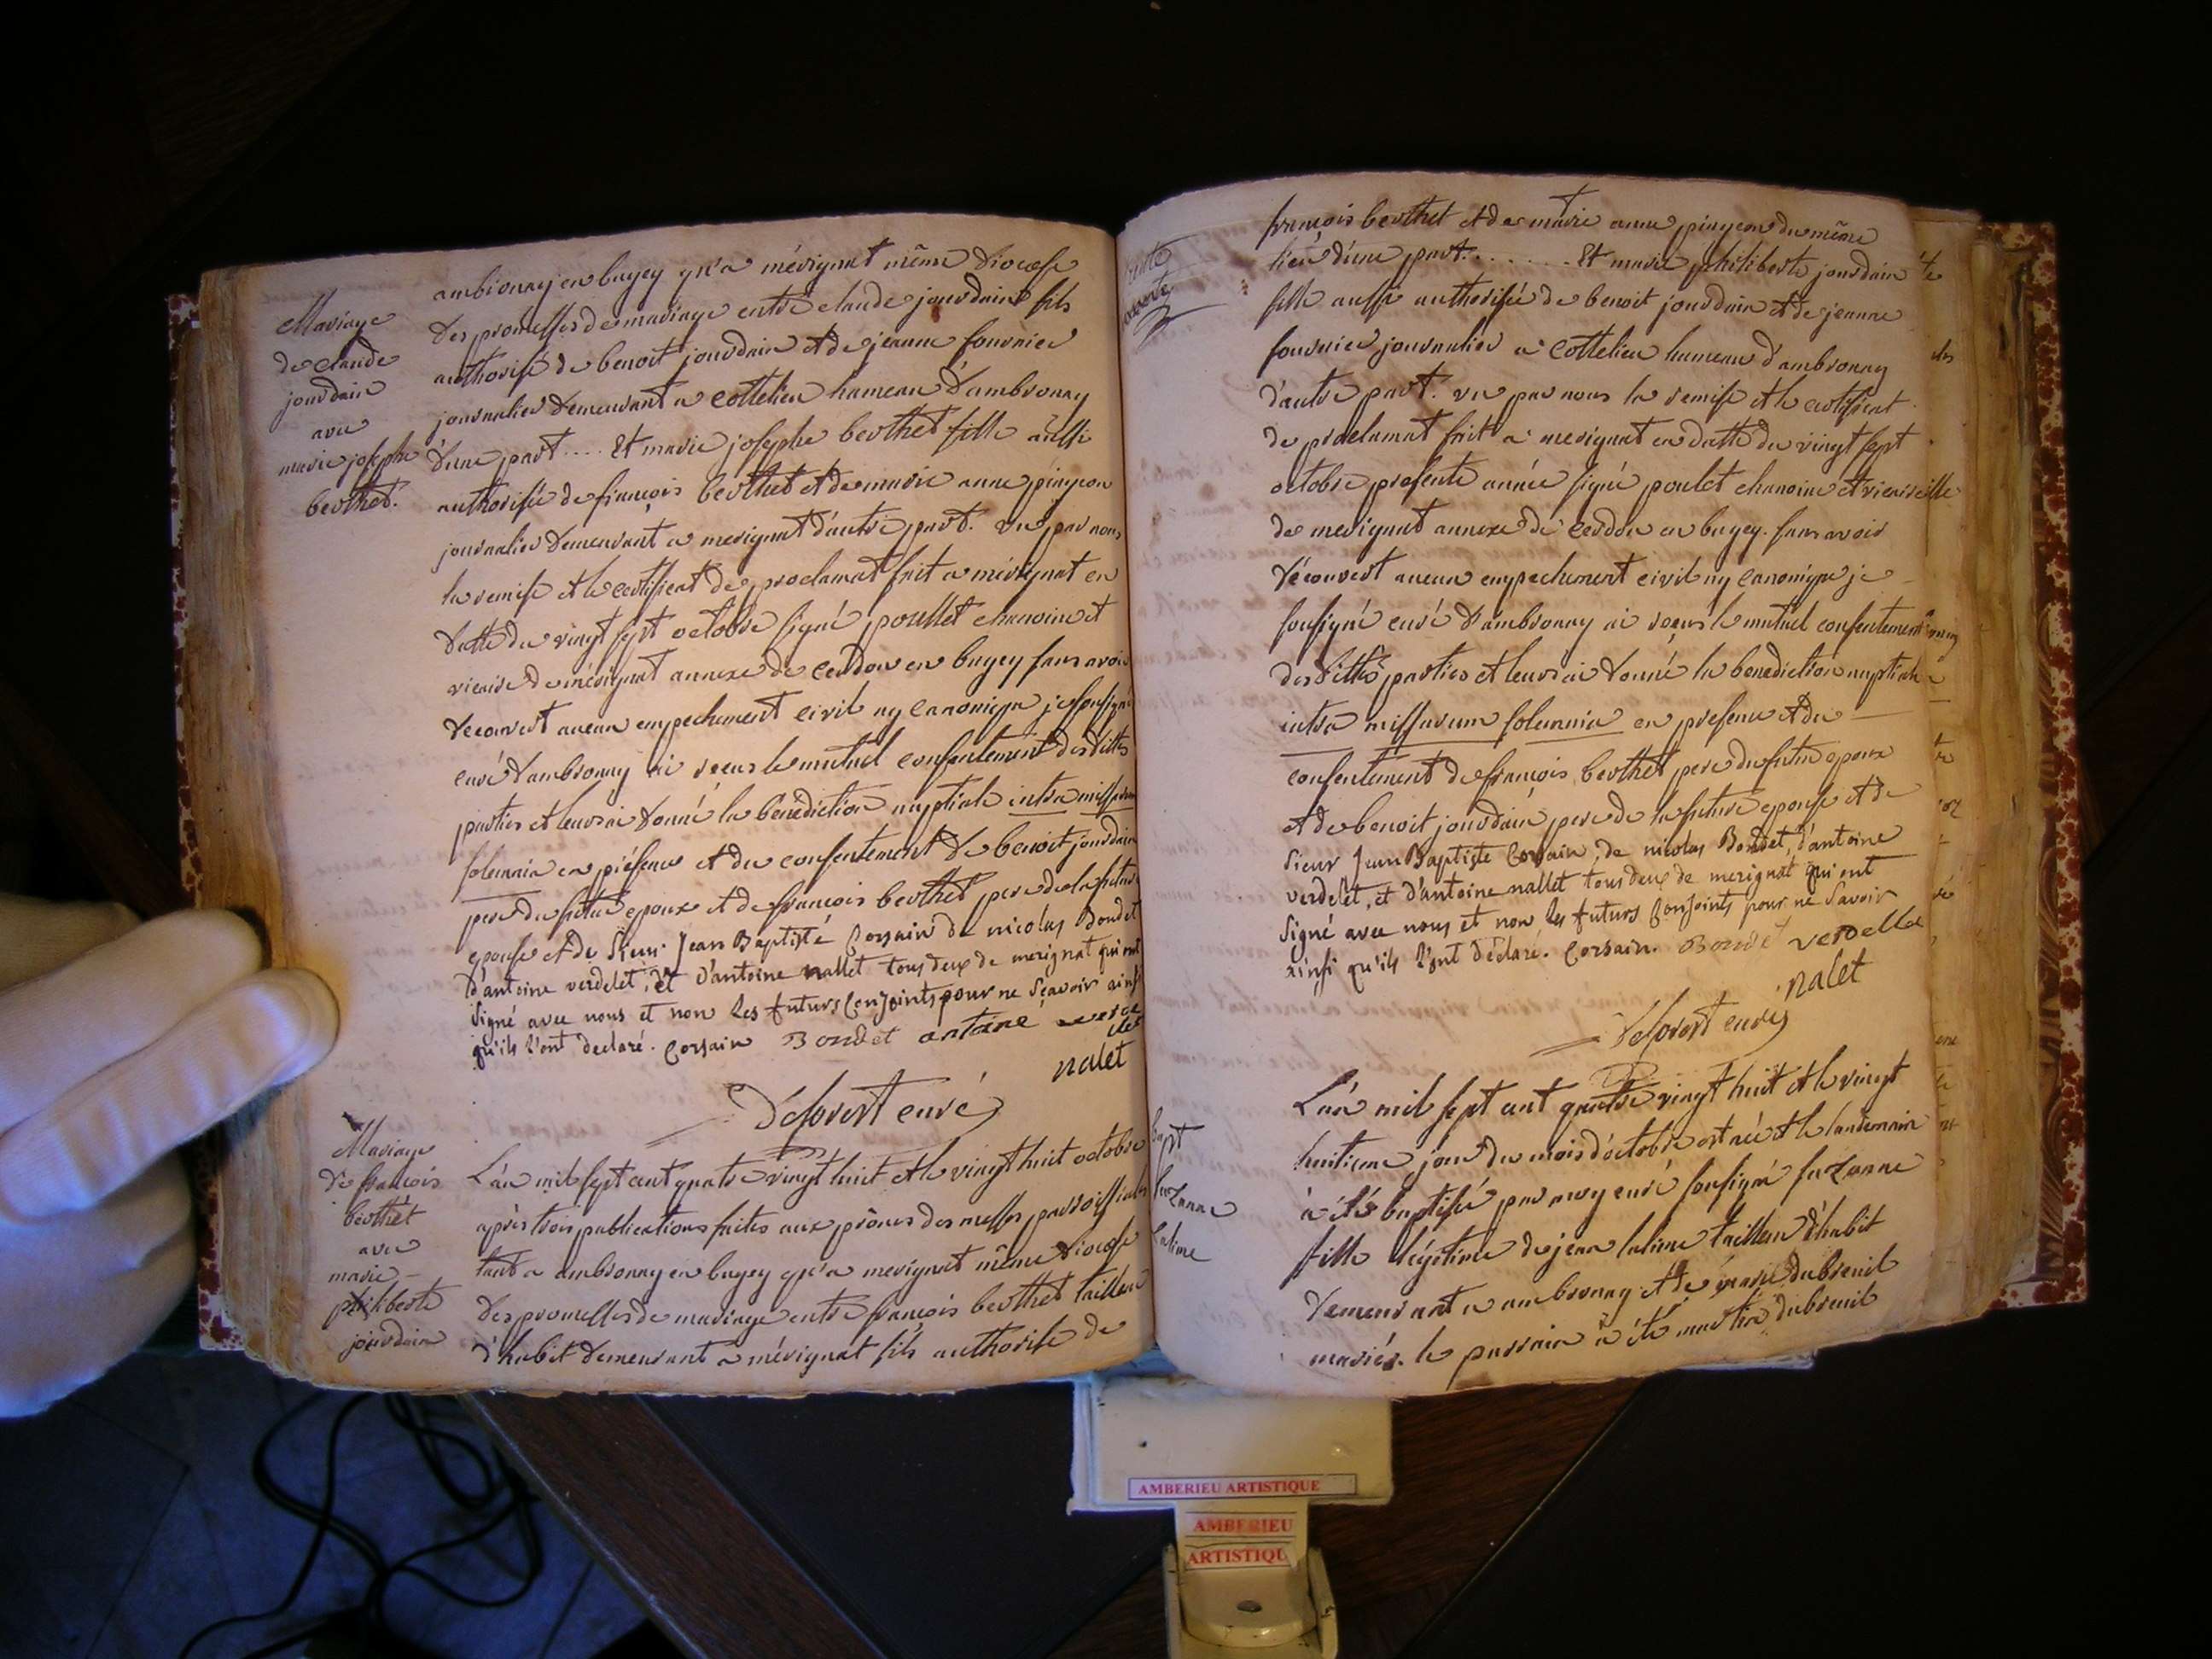 Mariage
de claude
jourdain
avec
marie josephe
berthet.
ambronay en bugey qu'a mérignat même diocese
des promesses de mariage entre claude jourdain fils
authorisé de benoit jourdain et de jeanne fournier
journalier demeurant a cottelieu hameau d'ambronay
d'une part .... Et marie josephe berthet fille aussi
authorisée de françois berthet et de marie anne pingeon
journalier demeurant a merignat d'autre part. vu par nous
la remise et le certificat de proclamat fait a mérignat en
datte du vingt sept octobre signé poullet chanoine et
vicaire de mérignat annexe de Cerdon en bugey sans avoir
decouvert aucun empechement civil ny canonique je soussigné
curé d'ambronay ai reçus le mutuel consentement des dittes
parties et leurs ai donné la bénédiction nuptiale intra missarum
solemnia en présence et du consentement de benoit jourdain
pere du futur epoux et de françois berthet pere de la future
epouse et de Sieur Jean Baptiste Corsain de nicolas Bondet
d'antoine verdelet, et d'antoine nallet tous deux de merignat qui ont
Signé avec nous et non les futurs Conjoints pour ne Sçavoir ainsi
qu'ils l'ont declaré. Corsain Bondet antoine verde
let
nalet
Deforest curé
Mariage
de françois
berthet
avec
marie
philiberte
jourdain
L'an mil sept cent quatre vingt huit et le vingt huit octobre
après trois publications faites aux prônes des messes parroissiales
tant a ambronay en bugey qu'a merignat même diocese
des promesses de mariage entre françois berthet tailleur
d'habit demeurant a mérignat fils authorisé de
françois berthet et de marie anne pingeon du même
lieu d'une part. . . . . . . . Et marie philiberte jourdain
fille aussi authorisée de benoit jourdain et de jeanne
fournier journalier a cottelieu hameau d'ambronay
d'autre part. vu par nous la remise et le certificat
de proclamat fait a merignat en datte du vingt sept
octobre presente année signé poulet chanoine et vicaire
de merignat annexe de Cerdon en bugey. sans avoir
découvert aucun empechement civil ny canonique je
soussigné curé d'ambronay ai reçus le mutuel consentement
des dittes parties et leurs ai donné la benediction nuptiale
intra missarum solemnia en presence et du
consentement de françois berthet pere du futur epoux
et de benoit jourdain pere de la future epouse et de
Sieur Jean Baptiste Corsain, de nicolas Bondet, d'antoine
verdelet, et d'antoine nallet tous deux de merignat qui ont
Signé avec nous et non les futurs Conjoints pour ne Savoir
ainsi qu'ils l'ont déclaré. Corsain. Bondet verdelle
nalet
Deforest curé
bapt
suzanne
Laline
L'an mil sept cent quatre vingt huit et le vingt
huitieme jour du mois d'octobre est née et le landemain
à été baptisée par moy curé soussigné suzanne
fille légitime de jean laline tailleur d'habit
demeurant a ambronay et de marie dubreuil
mariés. le parrain à été martin dubreuil
AMBERIEU ARTISTIQUE
AMBERIEU
ARTISTIQU